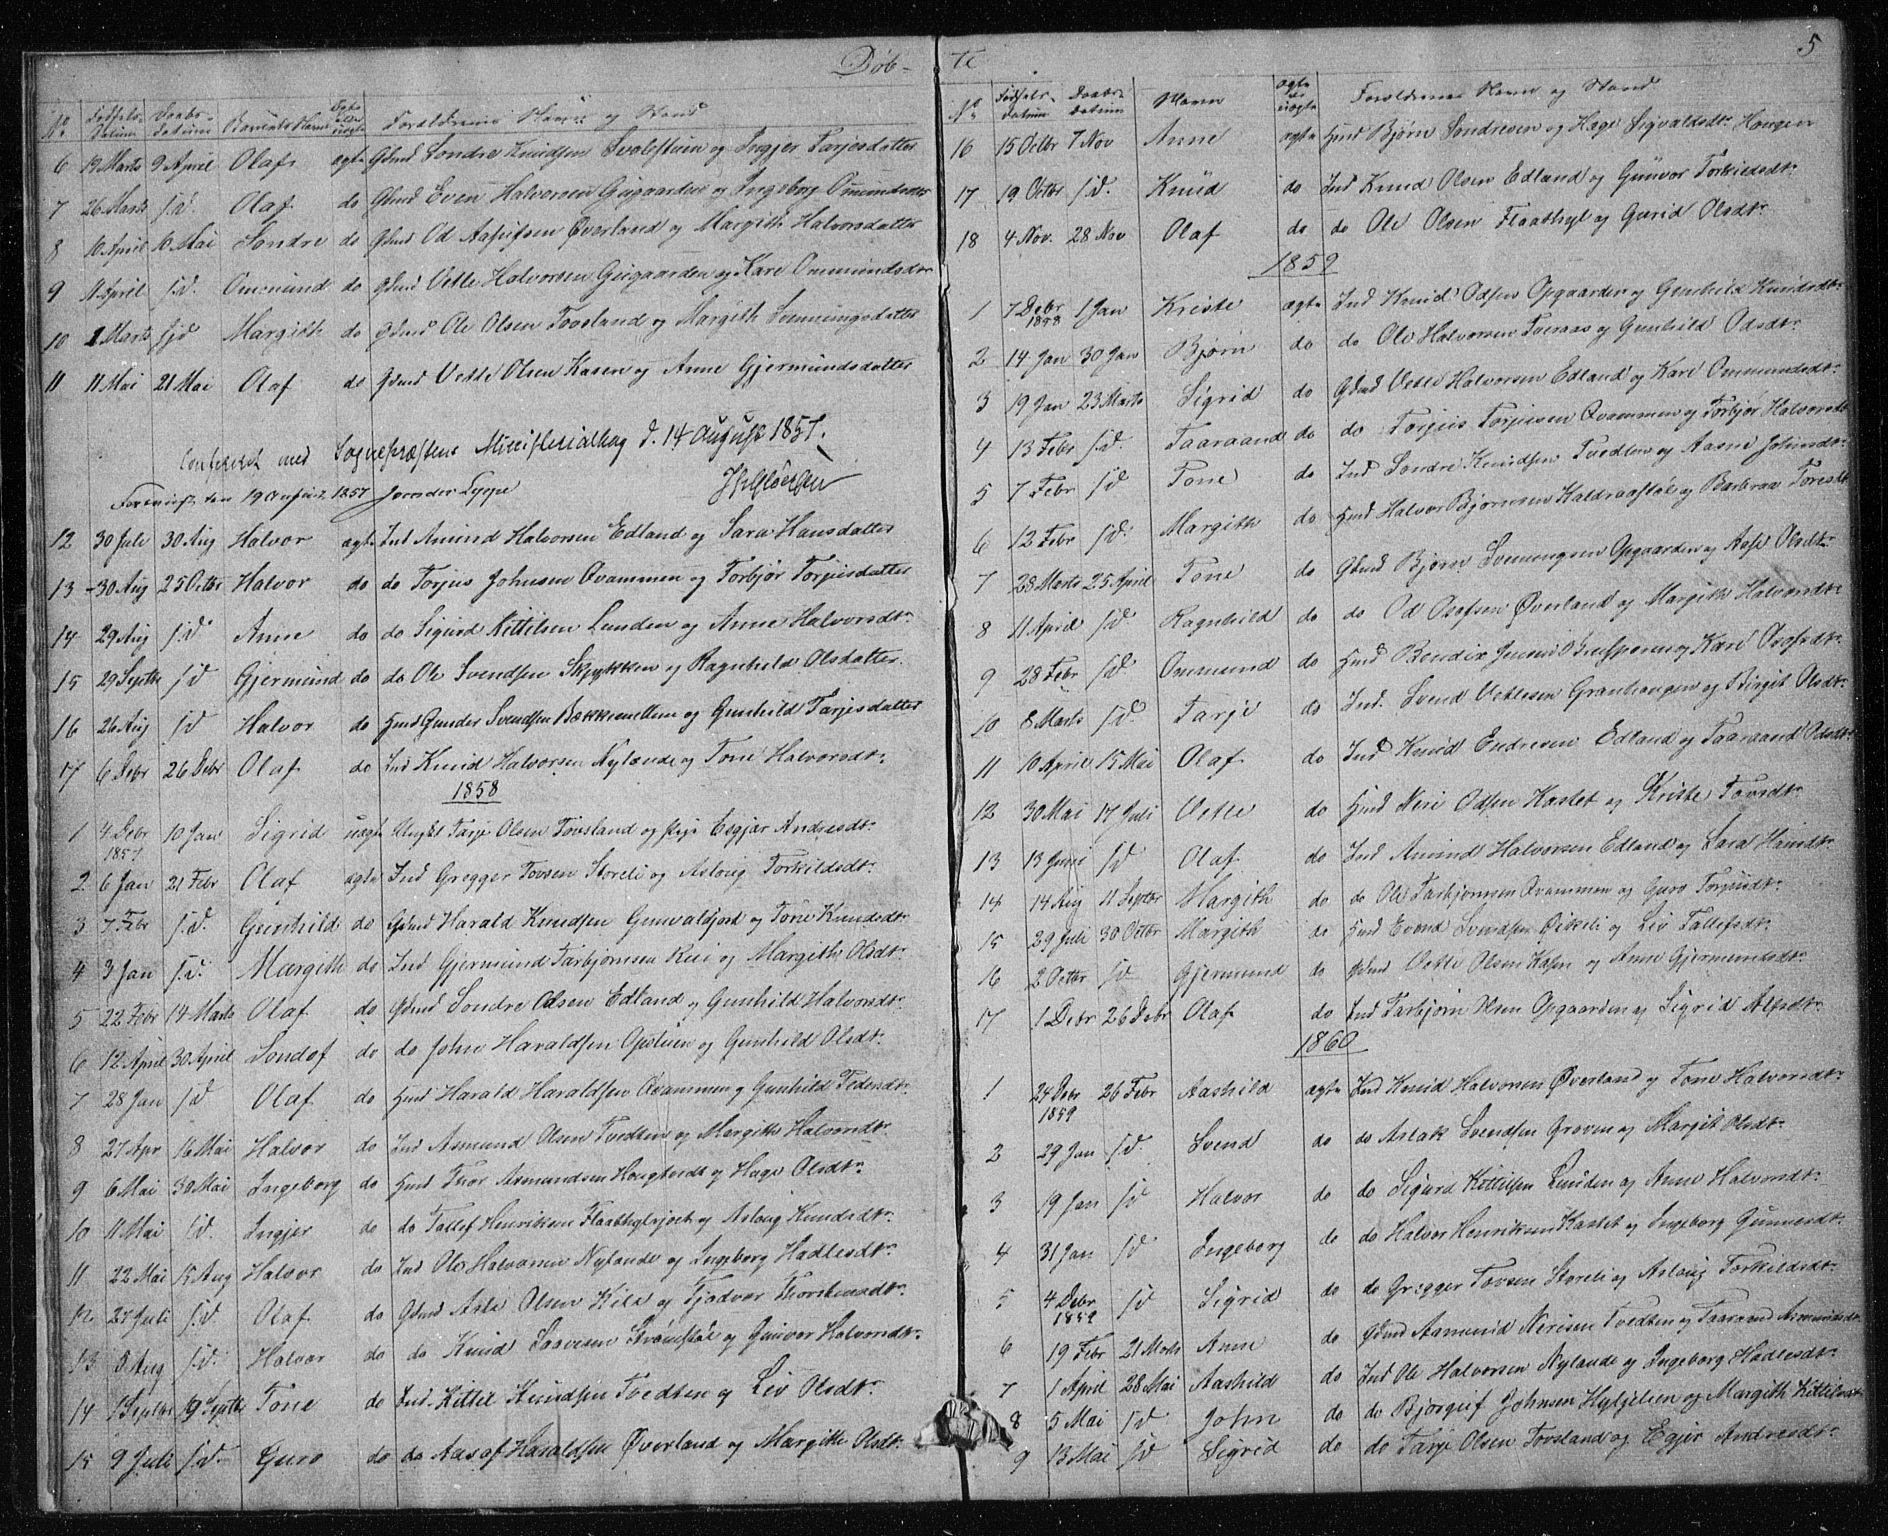 Døb-
No Fødsels-Datum Daabs-datum Barnets Navn Ægte eller uægte Forældrenes Navn og Stand
6 19 Marts 9 April Olaf ægte Gbmd Sondre Knudsen og Ingjer Tarjesdatter
7 26 Marts s.d. Olaf do Gbmd Even Halvorsen Gugaarden og Ingeborg Omundsdatter
8 10 April 10 Mai Sondre do Gbmd Od Øverland og Margith Halvorsdatter
9 11 April s.d. Ommund do Gbmd Vetle Halvorsen Gugaarden og Kare Ommundsdtr
10 1 Marts sjd Margith do Gbmd Ole Olsen Tovsland og Margith Svenningsdatter
11 11 Mai 21 Mai Olaf do Gbmd Vetle Olsen Kasen og Anne Gjermundsdatter
Confereret med Sognepræstens Ministerialbog d. 14 August 1857.
Forevist den 19 August 1857
12 30 Juli 30 Aug Halvor ægte Ind Amund Halvorsen Edland og Sara Hansdatter
13 -30 Aug 25 Octbr Halvor do do Torjus Johnsen Qvammen og Torbjør Torjusdatter
14 29 Aug s.d Anne do do Sigurd Kittilsen Lunden og Anne Halvorsdtr
15 29 Septbr s.d Gjermund do do Ole Svendsen og Ragnhild Olsdatter.
16 26 Aug s.d Halvor do Hmd Gunder Svendsen Bækkemellem og Gunhild Tarjesdatter
17 6 Debr 26 Debr Olaf do Ind Knud Halvorsen Nylænde og Tone Halvorsdtr
1858
1 4 Debr 1857 10 Jan Sigrid uægte Ungkl Tarje Olsen Tovsland og pige Esgjær Andresdtr
2 6 Jan 21 Febr Olaf ægte Ind Gregger Tovsen Storeli og Asloug Torkildsdtr
3 7 Febr s.d. Gunhild do Gbmd Harald Knudsen Grunvaldjord og Tone Knudsdtr
4 3 Jan s.d. Margith do Ind Gjermund Tarbjørnsen Rui og Margith Olsdtr
5 22 Febr 14 Marts Olaf do Gbmd Sondre Olsen Edland og Gunhild Halvorsdtr
6 12 April 30 April Sondof do do John Haraldsen Opstuen og Gunhild Olsdtr
7 28 Jan s.d Olaf do Hmd Harald Haraldsen Qvammen og Gunhild Federsdtr
8 27 Apr 16 Mai Halvor do Ind Asmund Olsen Tvedten og Margith Halvorsdtr
9 6 Mai 30 Mai Ingeborg do Hmd Thor Asmundsen og Hæge Olsdtr
10 11 Mai s.d. Ingjer do do Tallef Henriksen og Asloug Knudsdtr
11 22 Mai 15 Aug Halvor do Ind Ole Halvorsen Nylænde og Ingeborg Hadlesdtr
12 27 Juli s.d. Olaf do Gbmd Asle Olsen Kile og Tjodvor Thorstensdtr
13 8 Aug s.d. Halvor do do Knud Saavesen Strømstøl og Gunvor Halvorsdtr
14 1 Septbr 19 Septbr Tone do Ind. Kittil Knudsen Tvedten og Liv Olsdtr
15 9 Juli s.d. Guro do do Aasof Haraldsen Øverland og Margith Olsdtr
te 5
No Fødsels-datum Daabs-datum Navn Ægte el uægte Forældrenes Navn og Stand
16 15 Octbr 7 Nov Anne ægte Hmd Bjørn Sondresen og Hæge Sigvaldsdtr Haugen
17 19 Octbr s.d. Knud do Ind Knud Olsen Edland og Gunvor Torkildsdtr
18 4 Nov. 28 Nov Olaf do do Ole Olsen Flaathyl og Gurid Olsdtr
1859
1 7 Debr 1858 1 Jan Kriste ægte Ind Knud Odsen Opgaarden og Gunhild Knudsdtr
2 14 Jan 30 Jan Bjørn do do Ole Halvorsen Tveraas og Gunhild Odsdtr
3 19 Jan 23 Marts Sigrid do Gbmd Vetle Halvorsen Edland og Kare Ommundsdtr
4 13 Febr s.d. Taaraand do do Torjus Torjusen Qvammen og Torbjør Halvorsdtr
5 7 Febr s.d Tone do Ind Sondre Knudsen Tvedten og Aasne Johnsdtr
6 12 Febr s.d. Margith do Hmd Halvor Bjørnsen Kaldraastøl og Barbraa Toresdtr
7 28 Marts 25 April Tone do Gbmd Bjørn Svenningsen Opgaarden og Aase Olsdtr
8 11 April s.d Ragnhild do do Od Osofsen Øverland og Margith Halvorsdtr
9 28 Febr s.d. Ommund do Hmd Bendix Jensen og Kari Osofsdtr
10 8 Marts s.d. Tarje do Ind. Svend Vetlesen Granhaugen og Birgit Olsdtr
11 10 April 15 Mai Olaf do Ind Knud Endresen Edland og Taaraand Odsdtr
12 30 Mai 17 Juli Vetle do Hmd Neri Odsen Kastet og Kriste Tovsdtr
13 13 Juni s.d Olaf do Ind Amund Halvorsen Edland og Sara Hansdtr
14 14 Aug 11 Septbr Margith do do Ole Tarbjørnsen Qvammen og Guro Torjusdtr
15 29 Juli 30 Octbr Margith do Hmd Evend Svendsen og Liv Tallefsdtr
16 2 Octbr s.d Gjermund do Gbmd Vetle Olsen Kasen og Anne Gjermundsdtr
17 1 Debr 26 Debr Olaf do Ind Tarbjørn Olsen Opgaarden og Sigrid
1860
1 24 Debr 1859 26 Febr Aashild ægte Ind Knud Halvorsen Øverland og Tone Halvorsdtr
2 29 Jan s.d. Svend do do Aslak Svendsen Groven og Margit Olsdtr
3 19 Jan s.d Halvor do do Sigurd Kittilsen Lunden og Anne Halvorsdtr
4 31 Jan s.d Ingeborg do do Halvor Henriksen Kastet og Ingeborg Gunnersdtr
5 4 Debr 1859 s.d Sigrid do do Gregger Tovsen Storeli og Asloug Torkildsdtr
6 19 Febr 21 Mcts Anne do Gbmd Aamund Nerisen Tvedten og Taaraand Ammundsdtr
7 1 April 28 Mai Aashild do Ind Ole Halvorsen Nylænde og Ingeborg Hadlesdtr
8 5 Mai s.d John do do Bjørguf Johnsen Hyljelien og Margith Kittilsdtr
9 13 Mai s.d Sigrid do do Tarje Olsen Tovsland og Egjer Andresdtr